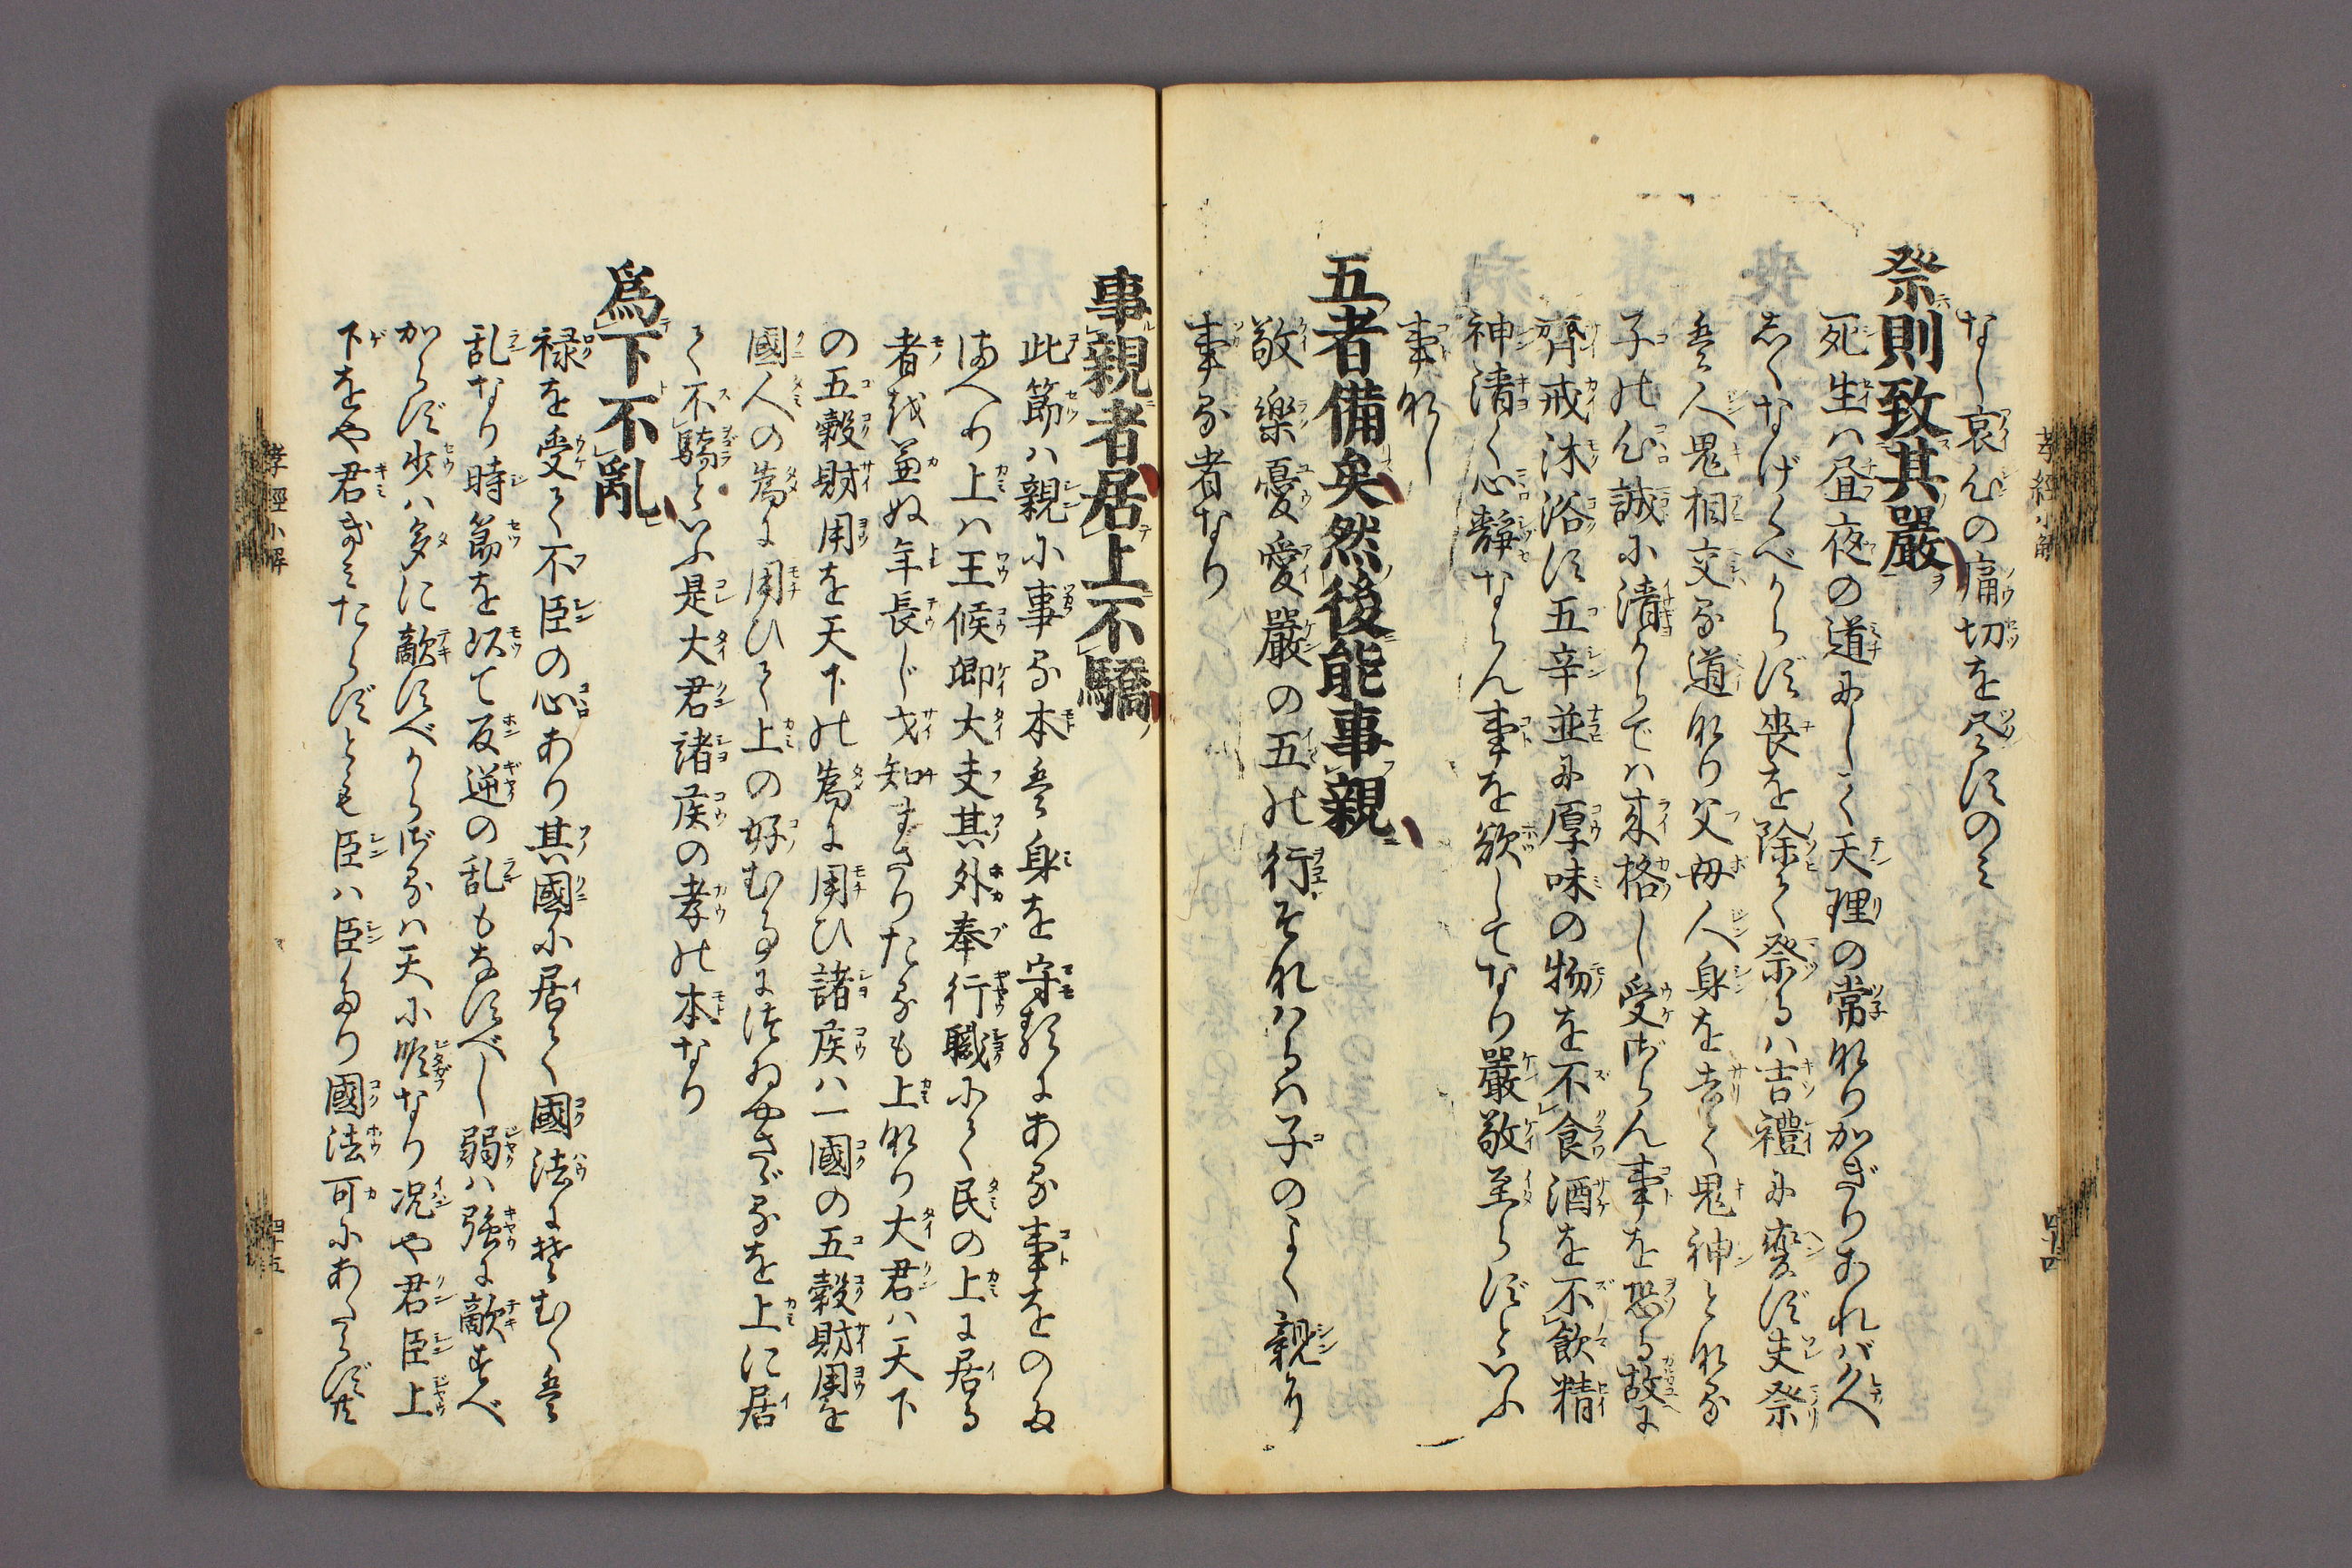 孝經小解
四十四
なし哀心の痛切を尽すのミ
祭則致其嚴
死生ハ昼夜の道にして天理の常なりかぎりあれバ人
しくなげくべからず喪を除て祭るハ吉禮に変ず夫祭
ハ人鬼相交る道なり父母人身を去て鬼神となる
子の心誠に清からでハ来格し受ざらん事を恐る故に
齊戒沐浴す五辛並に厚味の物を不食酒を不飲精
神清く心静ならん事を欲してなり嚴敬至らずといふ
事なし
五者備矣然後能事親
敬樂憂愛嚴の五の行それハるハ子のよく親に
事る者なり
事親者居上不驕
此節ハ親に事る本吾身を守るにある事をのた
まへり上ハ王候卿大夫其外奉行職にて民の上に居る
者を兼ぬ年長じ才知まさりたるも上なり大君ハ天下
の五穀財用を天下の為に用ひ諸侯ハ一國の五穀財用を
國人の為に用ひて上の好むるにつゐやさゞるを上に居
て不驕といふ是大君諸侯の孝の本なり
為下不亂
禄を受て不臣の心あり其國に居て國法にそむく吾
乱なり時節を以て反逆の乱もなすべし弱ハ強に敵すべ
からず少ハ多に敵すべからざるハ天に順なり況や君臣上
下をや君きミたらずとも臣ハ臣たり國法可にあらず共
孝經小解
四十五